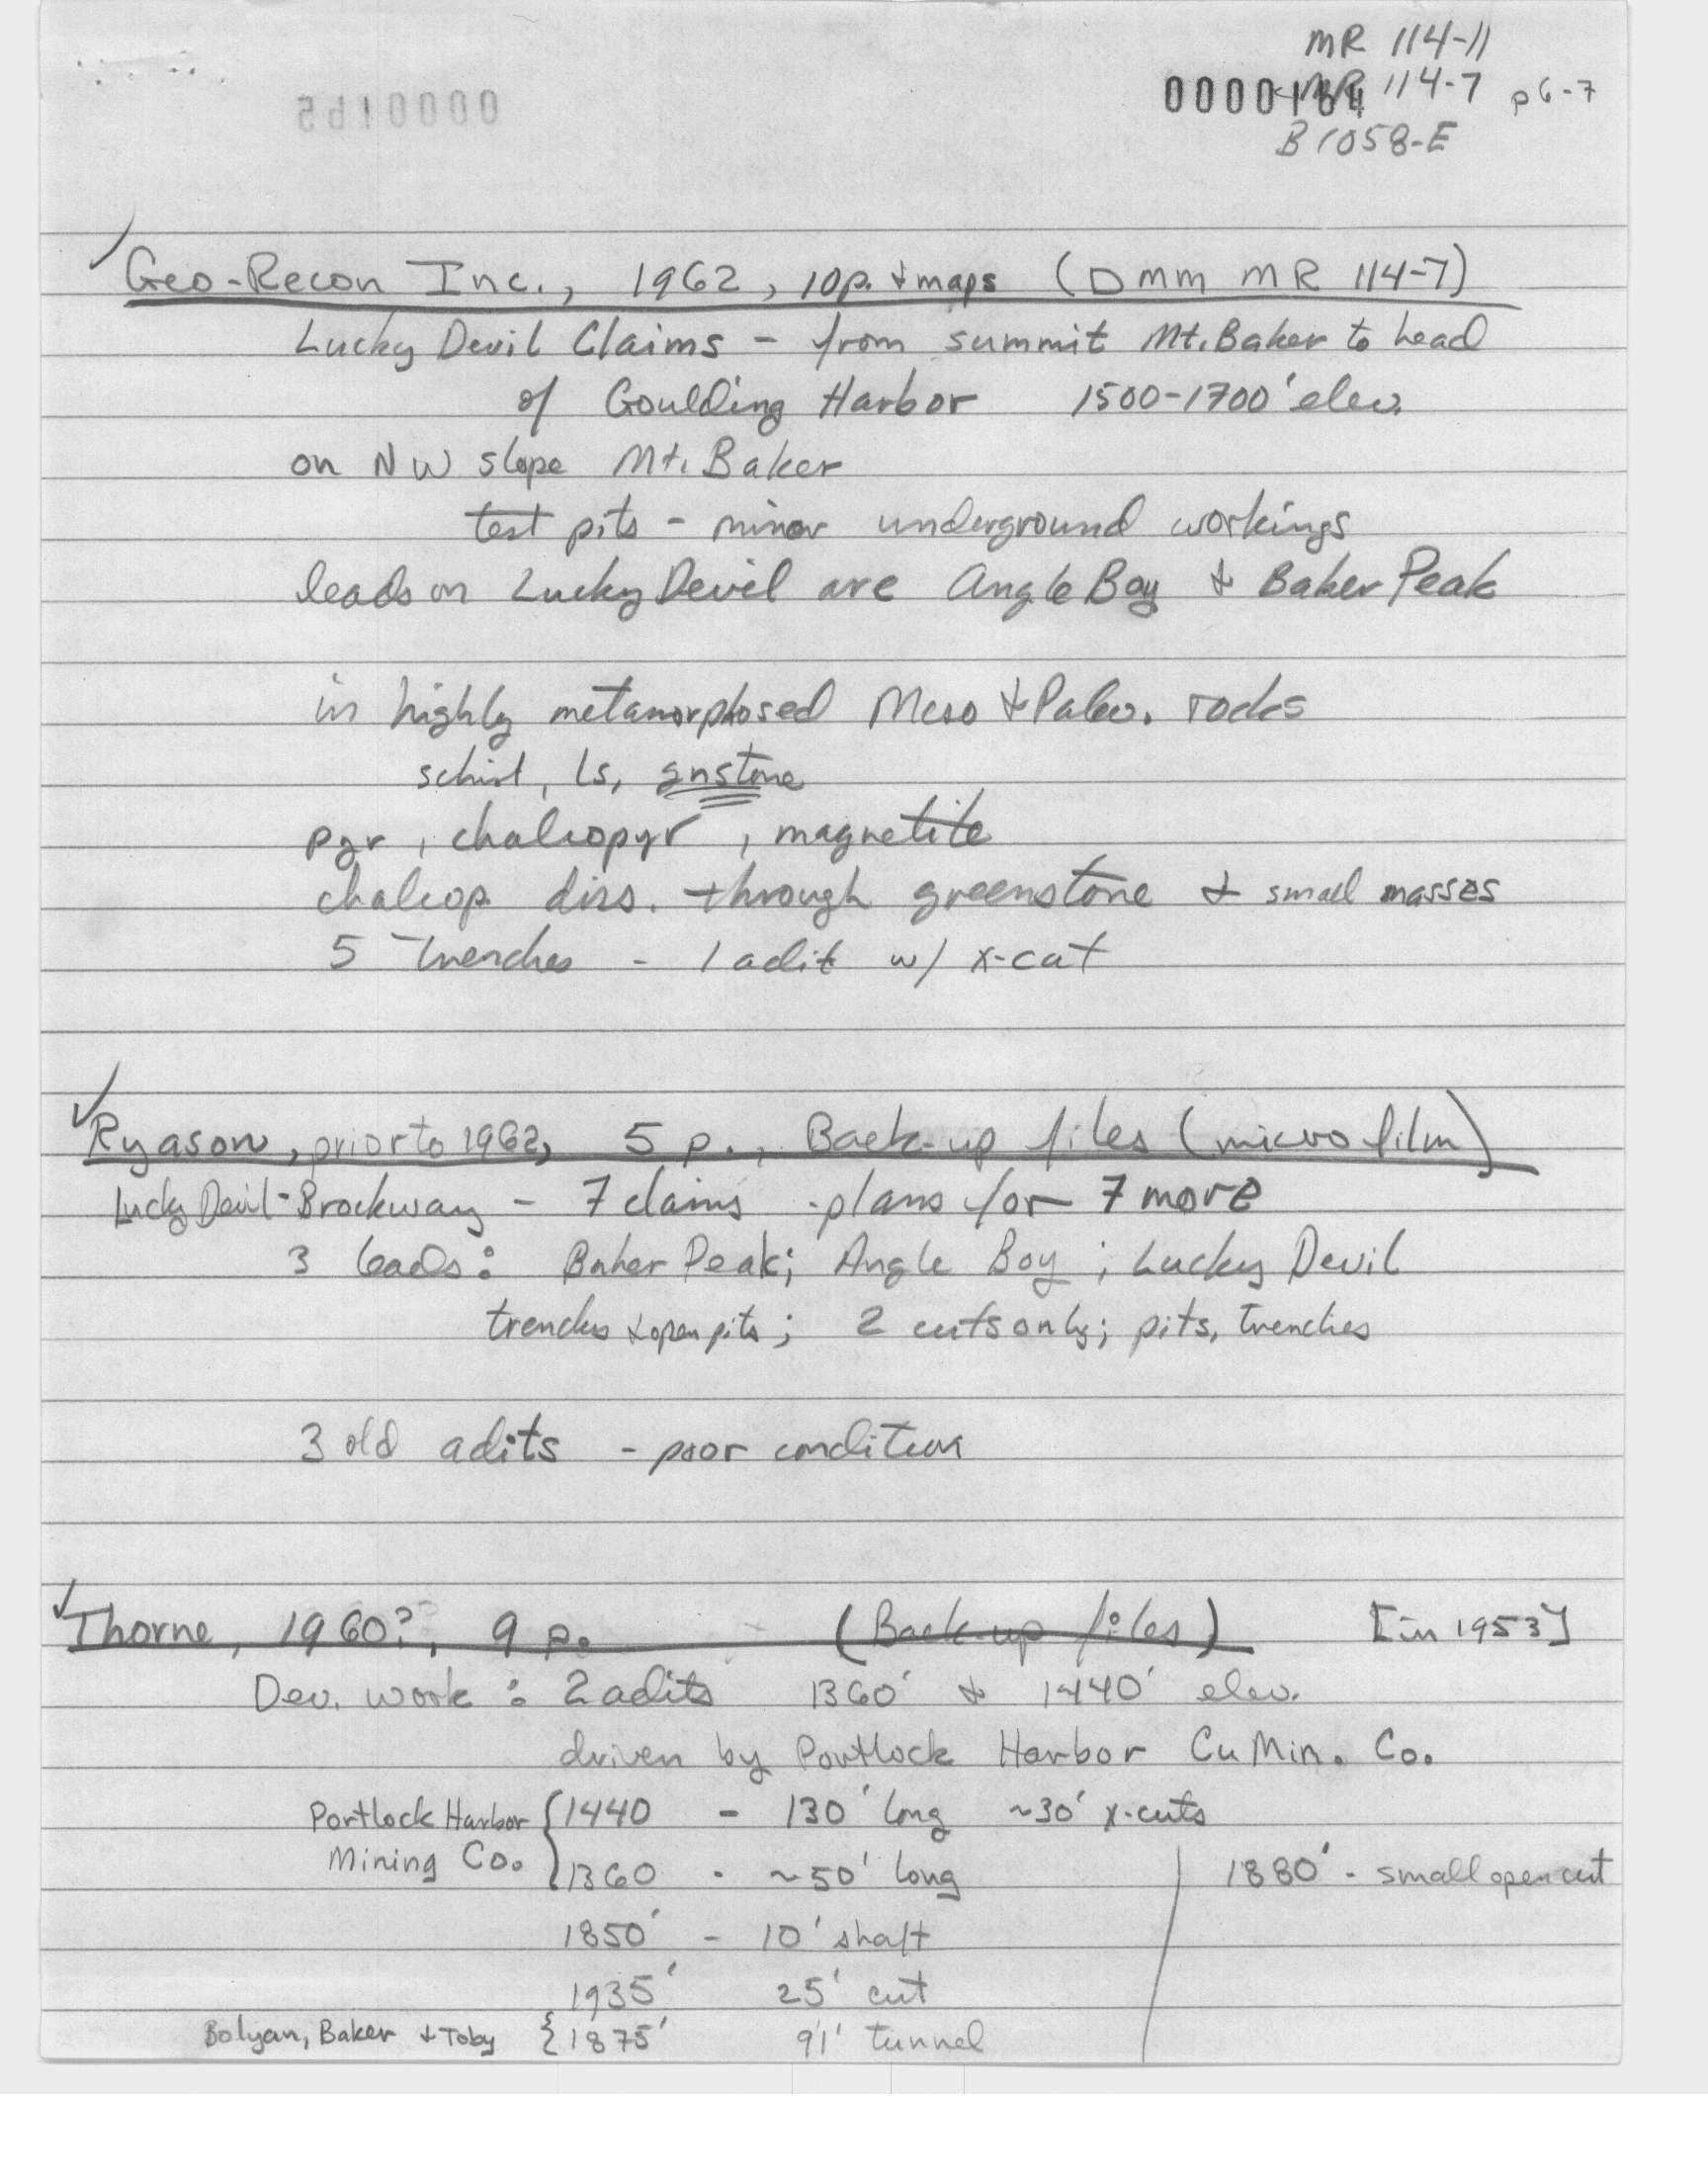 MR 114-11
0000164 MR 114-7 p 6-7
B 1058-E
0000165
Geo-Recon Inc., 1962, 10p. & maps (DMM MR 114-7)
Lucky Devil Claims - from summit Mt. Baker to head
of Goulding Harbor 1500-1700' elev.
on NW slope Mt. Baker
test pits - minor underground workings
leads on Lucky Devil are Angle Boy & Baker Peak
in highly metamorphosed Meso & Paleo. rocks
schist, ls, gnstone
pyr, chalcopyr, magnetite
chalcop. diss. through greenstone & small masses
5 trenches - 1 adit w/ x-cut
Ryason, prior to 1962, 5 p., Back-up files (microfilm)
Lucky Devil-Brockway - 7 claims - plans for 7 more
3 leads: Baker Peak; Angle Boy; Lucky Devil
trenches & open pits; 2 cuts only; pits, trenches
3 old adits - poor condition
Thorne, 1960?, 9 p. (Back-up files) [in 1953]
Dev. work: 2 adits 1360' & 1440' elev.
driven by Portlock Harbor Cu Min. Co.
Portlock Harbor { 1440 - 130' long ~30' x-cuts
Mining Co. 1360 - ~50' long 1880' - small open cut
1850' - 10' shaft
1935' 25' cut
Bolyan, Baker & Toby { 1875' 91' tunnel